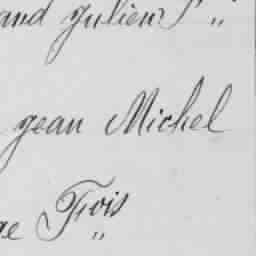 and julien S "
jean Michel
re Frois "